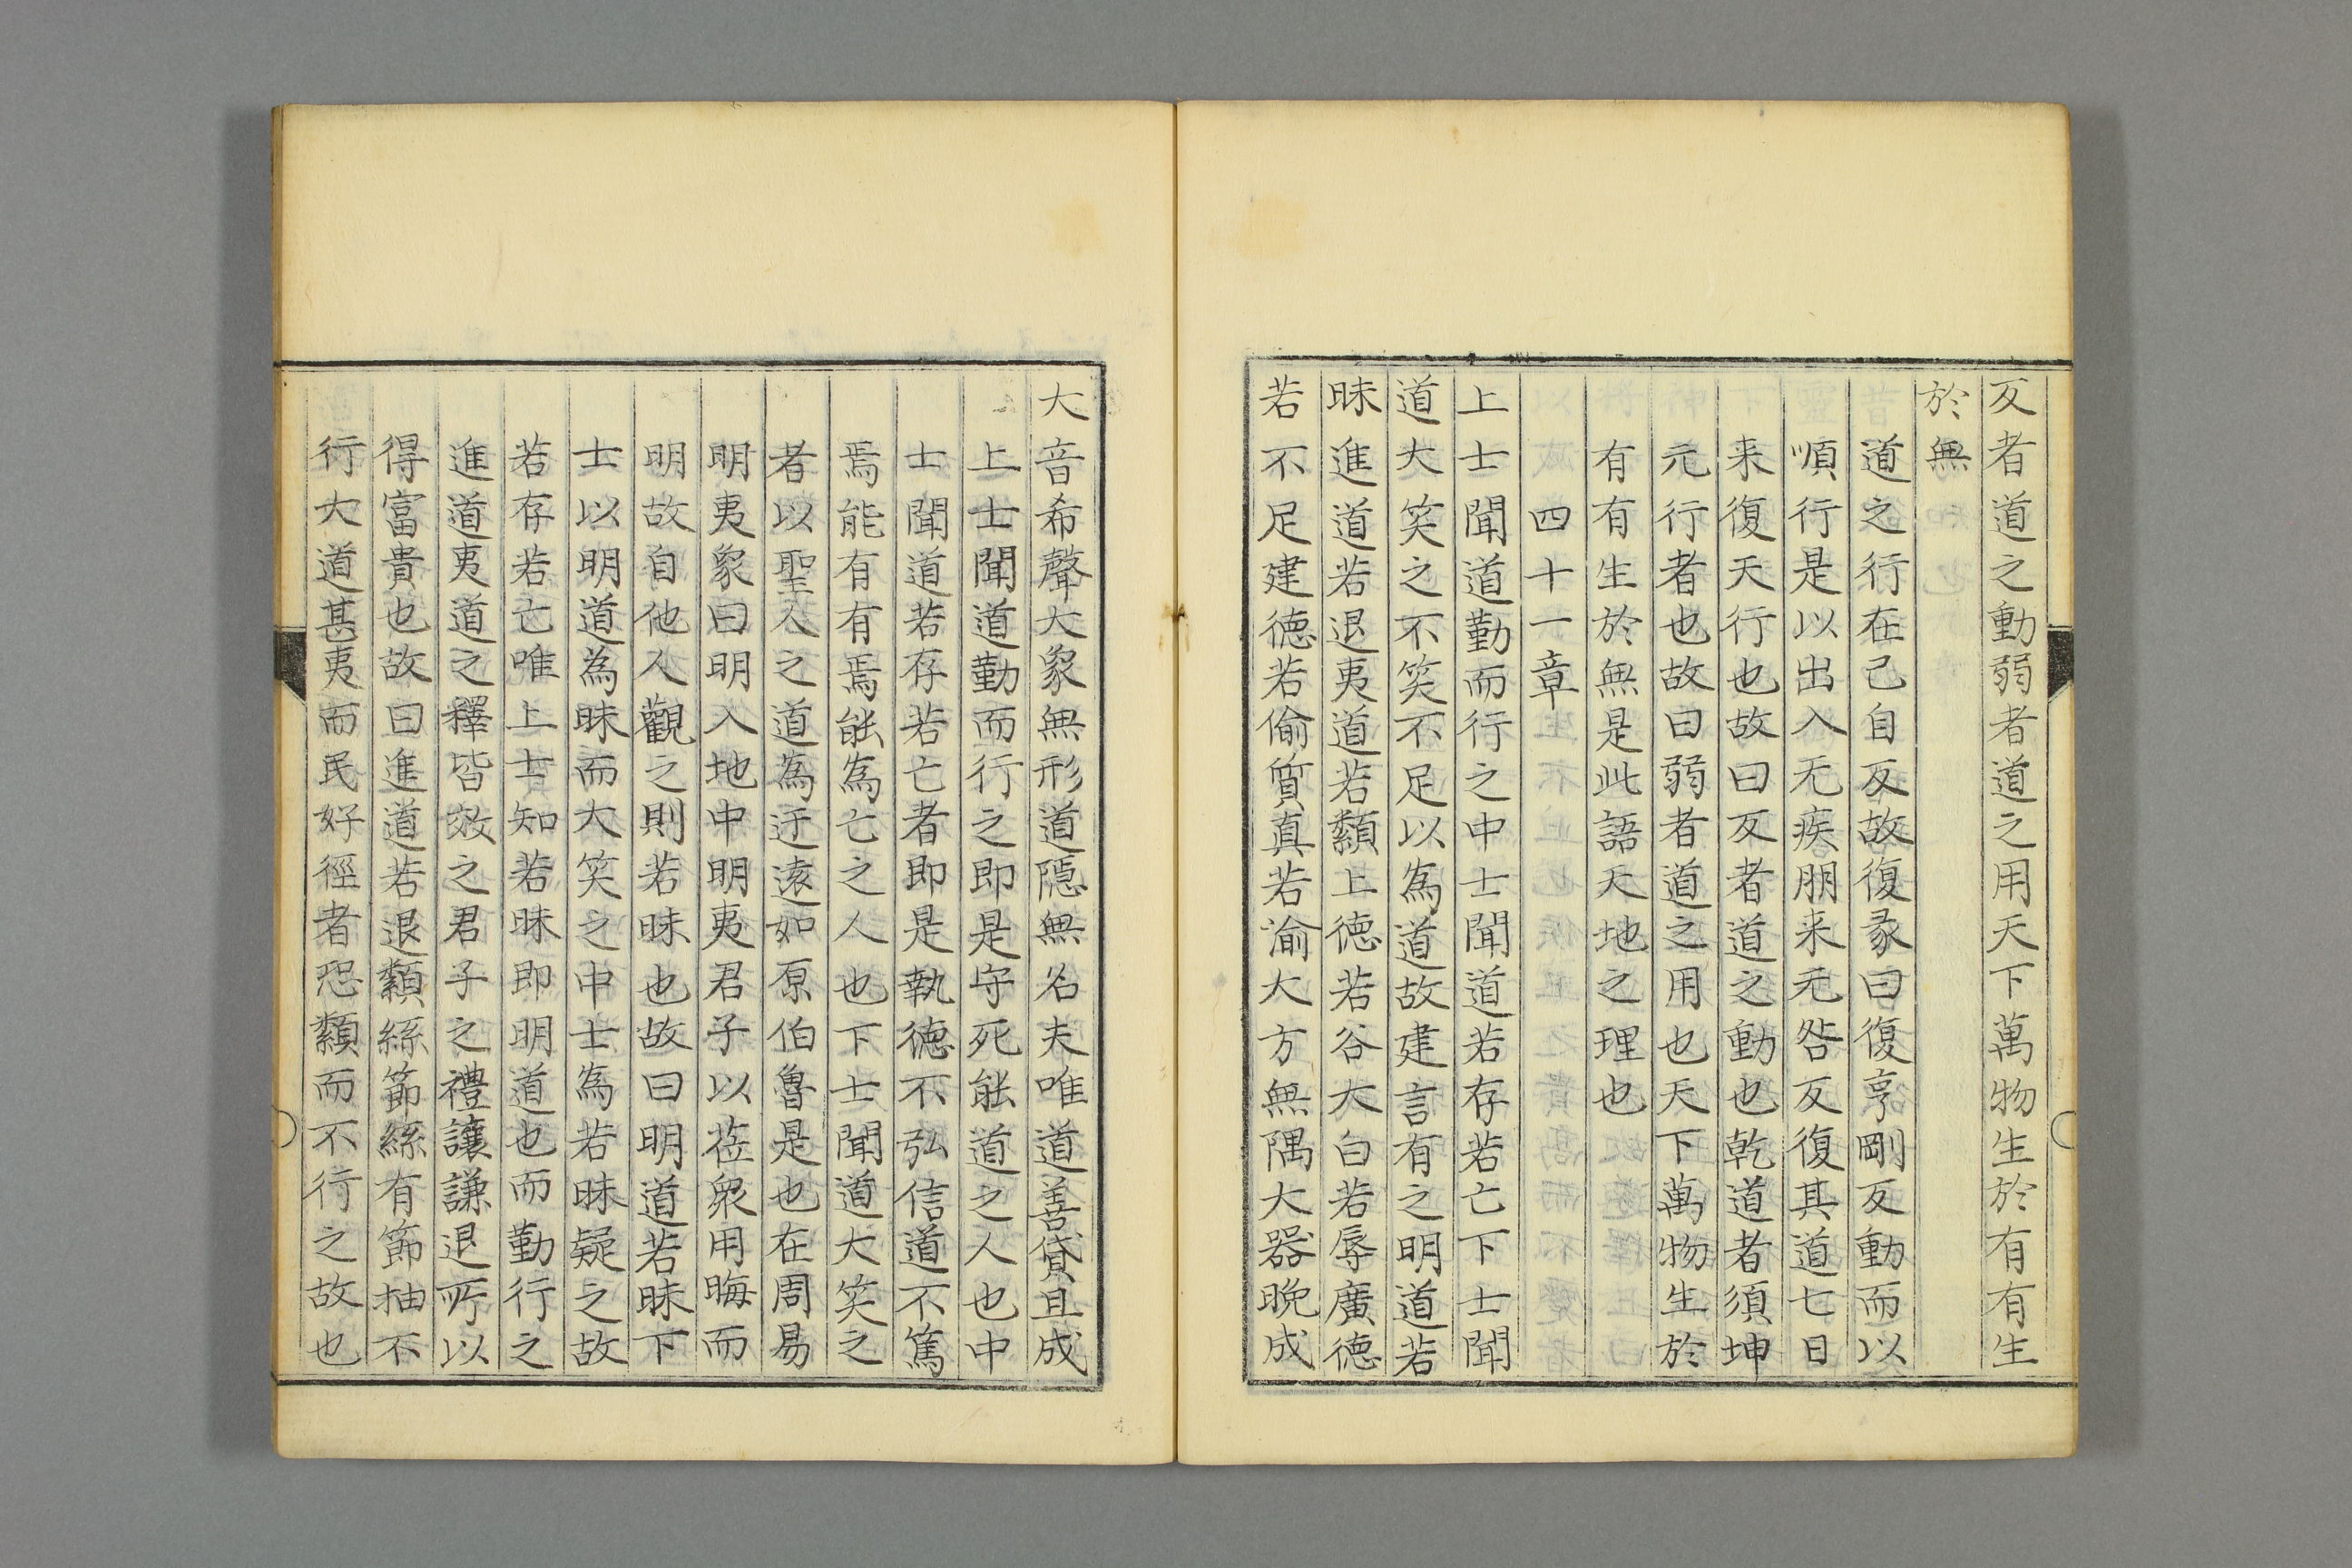 反者道之動弱者道之用天下萬物生於有有生
於無
道之行在己自反故復彖曰復亨剛反動而以
順行是以出入无疾朋来无咎反復其道七日
来復天行也故曰反者道之動也乾道者須坤
元行者也故曰弱者道之用也天下萬物生於
有有生於無是此語天地之理也
四十一章
上士聞道勤而行之中士聞道若存若亡下士聞
道大笑之不笑不足以為道故建言有之明道若
昧進道若退夷道若纇上德若谷大白若辱廣德
若不足建德若偷質真若渝大方無隅大器晚成
大音希聲大象無形道隱無名夫唯道善貸且成
上士聞道勤而行之即是守死能道之人也中
士聞道若存若亡者即是執德不弘信道不篤
焉能有有焉能為亡之人也下士聞道大笑之
者以聖人之道為迂遠如原伯魯是也在周易
明夷象曰明入地中明夷君子以莅衆用晦而
明故自他人觀之則若昧也故曰明道若昧下
士以明道為昧而大笑之中士為若昧疑之故
若存若亡唯上士知若昧即明道也而勤行之
進道夷道之釋皆效之君子之禮讓謙退所以
得富貴也故曰進道若退纇絲節絲有節抽不
行大道甚夷而民好徑者恐纇而不行之故也